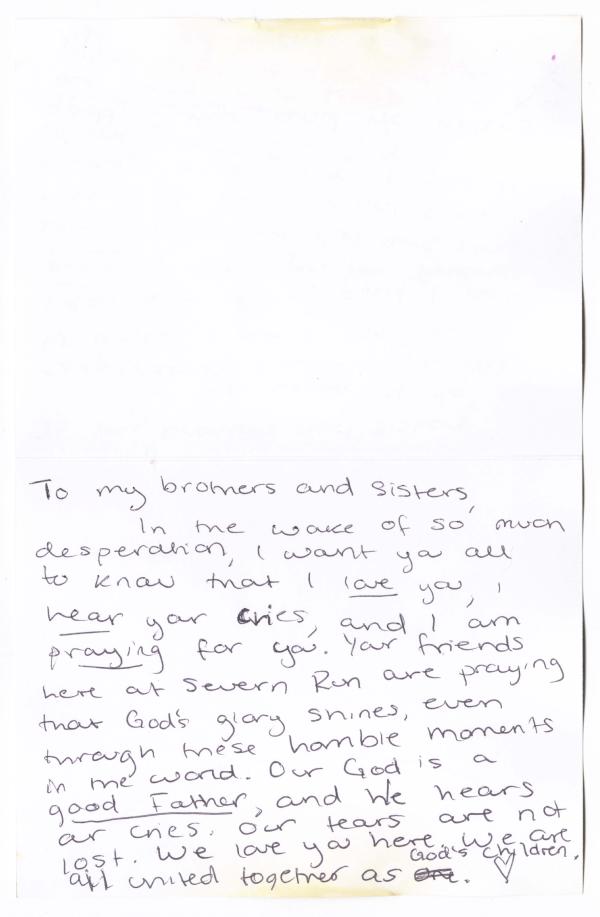 To my brothers and sisters,
In the wake of so much
desperation, I want you all
to know that I love you, I
hear your cries, and I am
praying for you. Your friends
here at Severn Run are praying
that God's glory shines, even
through these horrible moments
in the world. Our God is a
good Father, and He hears
our cries. Our tears are not
lost. We love you here. We are
all united together as God's children.